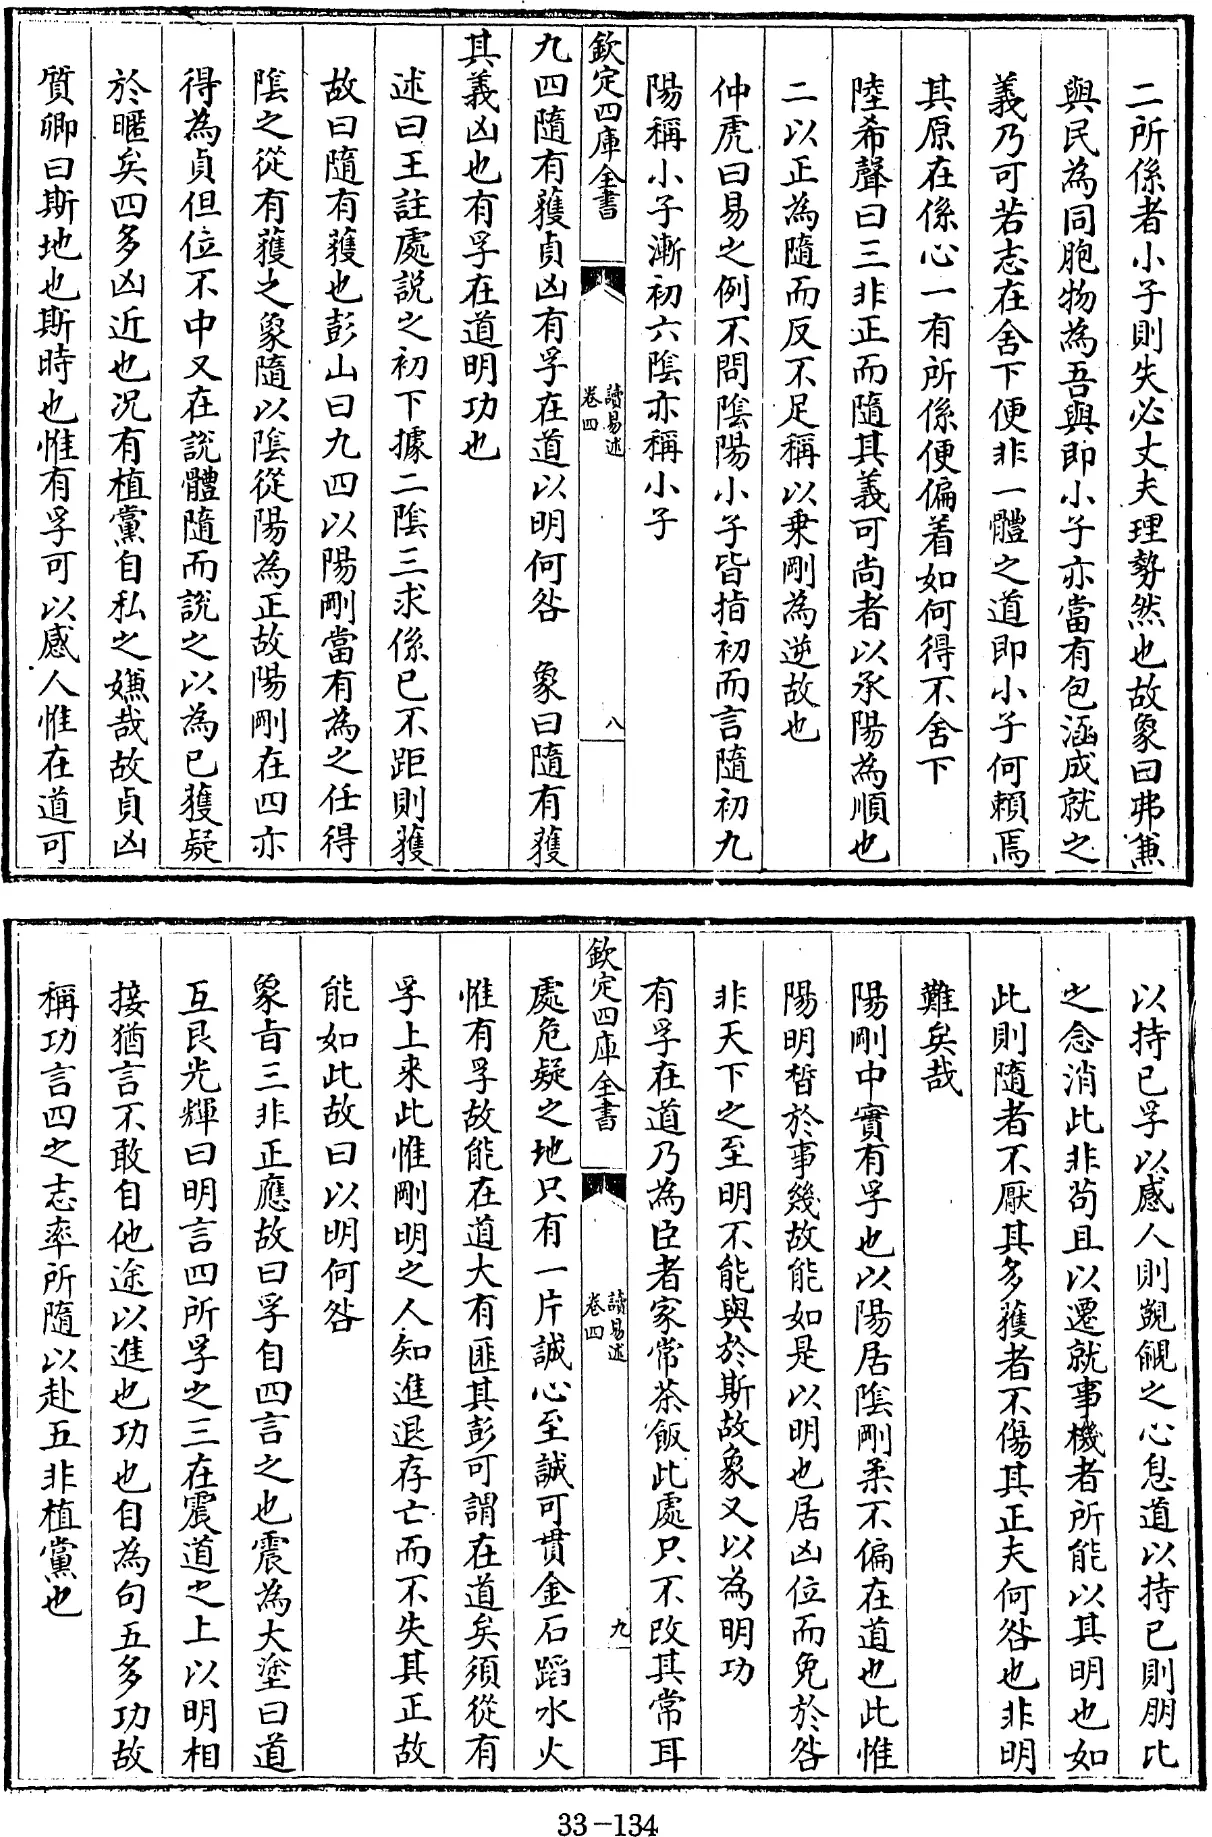 二所係者小子則失必丈夫理勢然也故象曰弗兼
與民為同胞物為吾與即小子亦當有包涵成就之
義乃可若志在舍下便非一體之道即小子何賴焉
其原在係心一有所係便偏着如何得不舍下
陸希聲曰三非正而隨其義可尚者以承陽為順也
二以正為隨而反不足稱以乗剛為逆故也
仲虎曰易之例不問隂陽小子皆指初而言隨初九
陽稱小子漸初六隂亦稱小子
欽定四庫全書
讀易述
卷四
八
九四隨有獲貞凶有孚在道以明何咎　象曰隨有獲
其義凶也有孚在道明功也
述曰王註處説之初下據二隂三求係已不距則獲
故曰隨有獲也彭山曰九四以陽剛當有為之任得
隂之從有獲之象隨以隂從陽為正故陽剛在四亦
得為貞但位不中又在説體隨而説之以為已獲疑
於暱矣四多凶近也况有植黨自私之嫌哉故貞凶
質卿曰斯地也斯時也惟有孚可以感人惟在道可
以持已孚以感人則覬覦之心息道以持已則朋比
之念消此非苟且以遷就事機者所能以其明也如
此則隨者不厭其多獲者不傷其正夫何咎也非明
難矣哉
陽剛中實有孚也以陽居隂剛柔不偏在道也此惟
陽明晳於事幾故能如是以明也居凶位而免於咎
非天下之至明不能與於斯故象又以為明功
有孚在道乃為臣者家常茶飯此處只不改其常耳
欽定四庫全書
讀易述
卷四
九
處危疑之地只有一片誠心至誠可貫金石蹈水火
惟有孚故能在道大有匪其彭可謂在道矣須從有
孚上来此惟剛明之人知進退存亡而不失其正故
能如此故曰以明何咎
象旨三非正應故曰孚自四言之也震為大塗曰道
互艮光輝曰明言四所孚之三在震道之上以明相
接猶言不敢自他途以進也功也自為句五多功故
稱功言四之志率所隨以赴五非植黨也
33-134